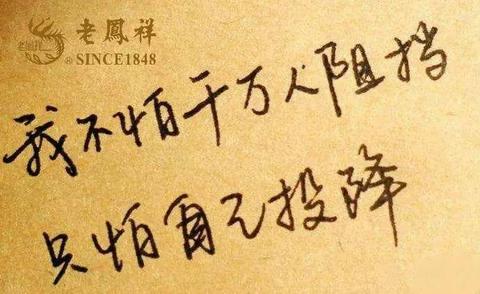 老鳳祥
® SINCE1848
我不怕千万人阻挡
只怕自己投降